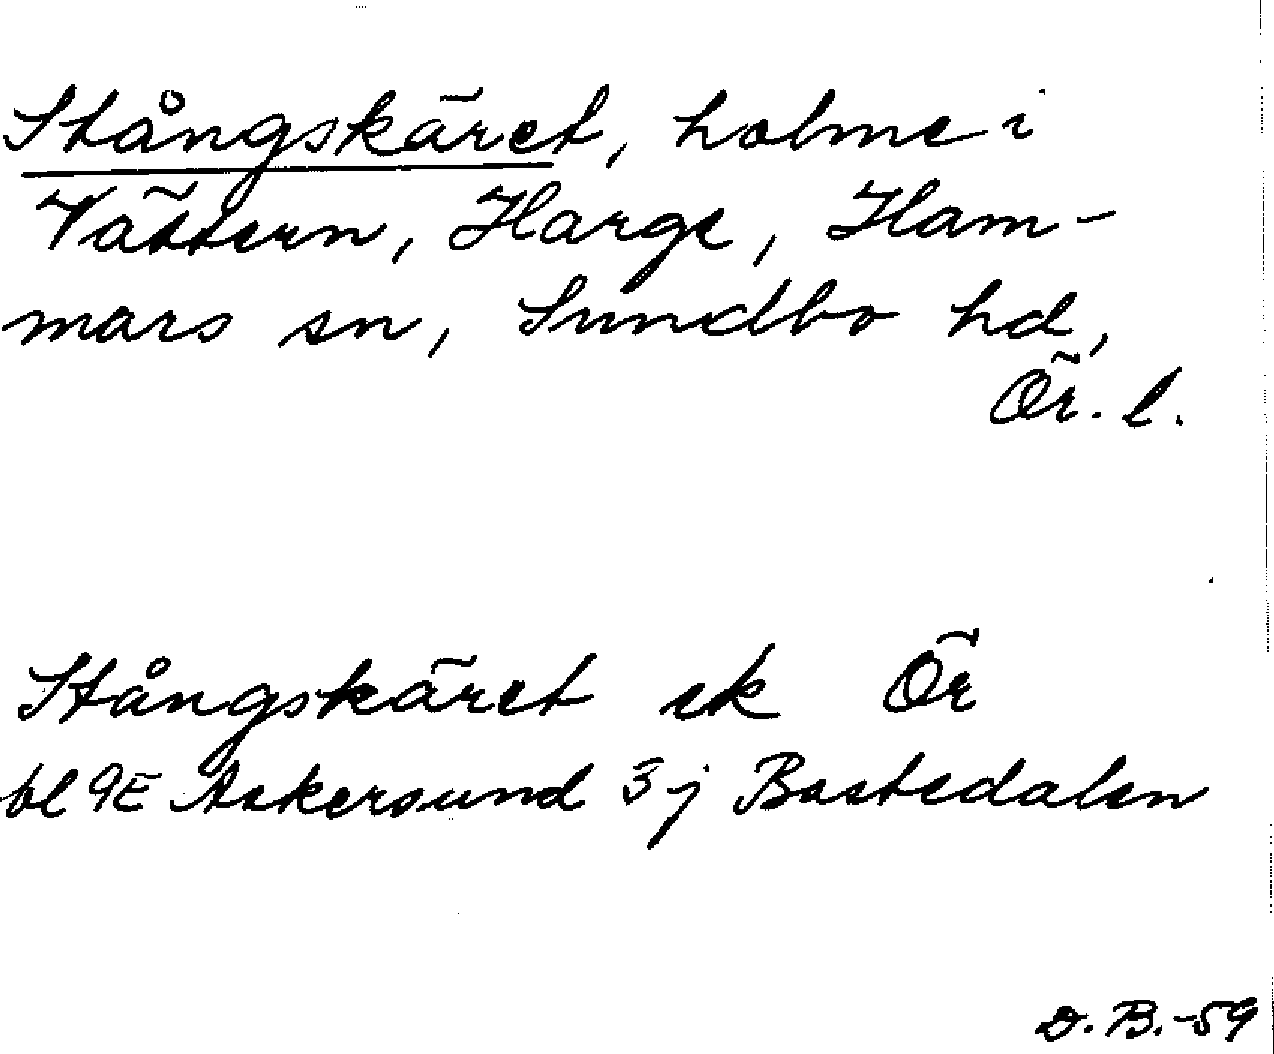 Stångskäret, holme i
Vättern, Harge, Ham-
mars sn, Sundbo hd,
Ör. l.
Stångskäret ek Ör
bl 9E Askersund 3j Bastedalen
D.B.-59